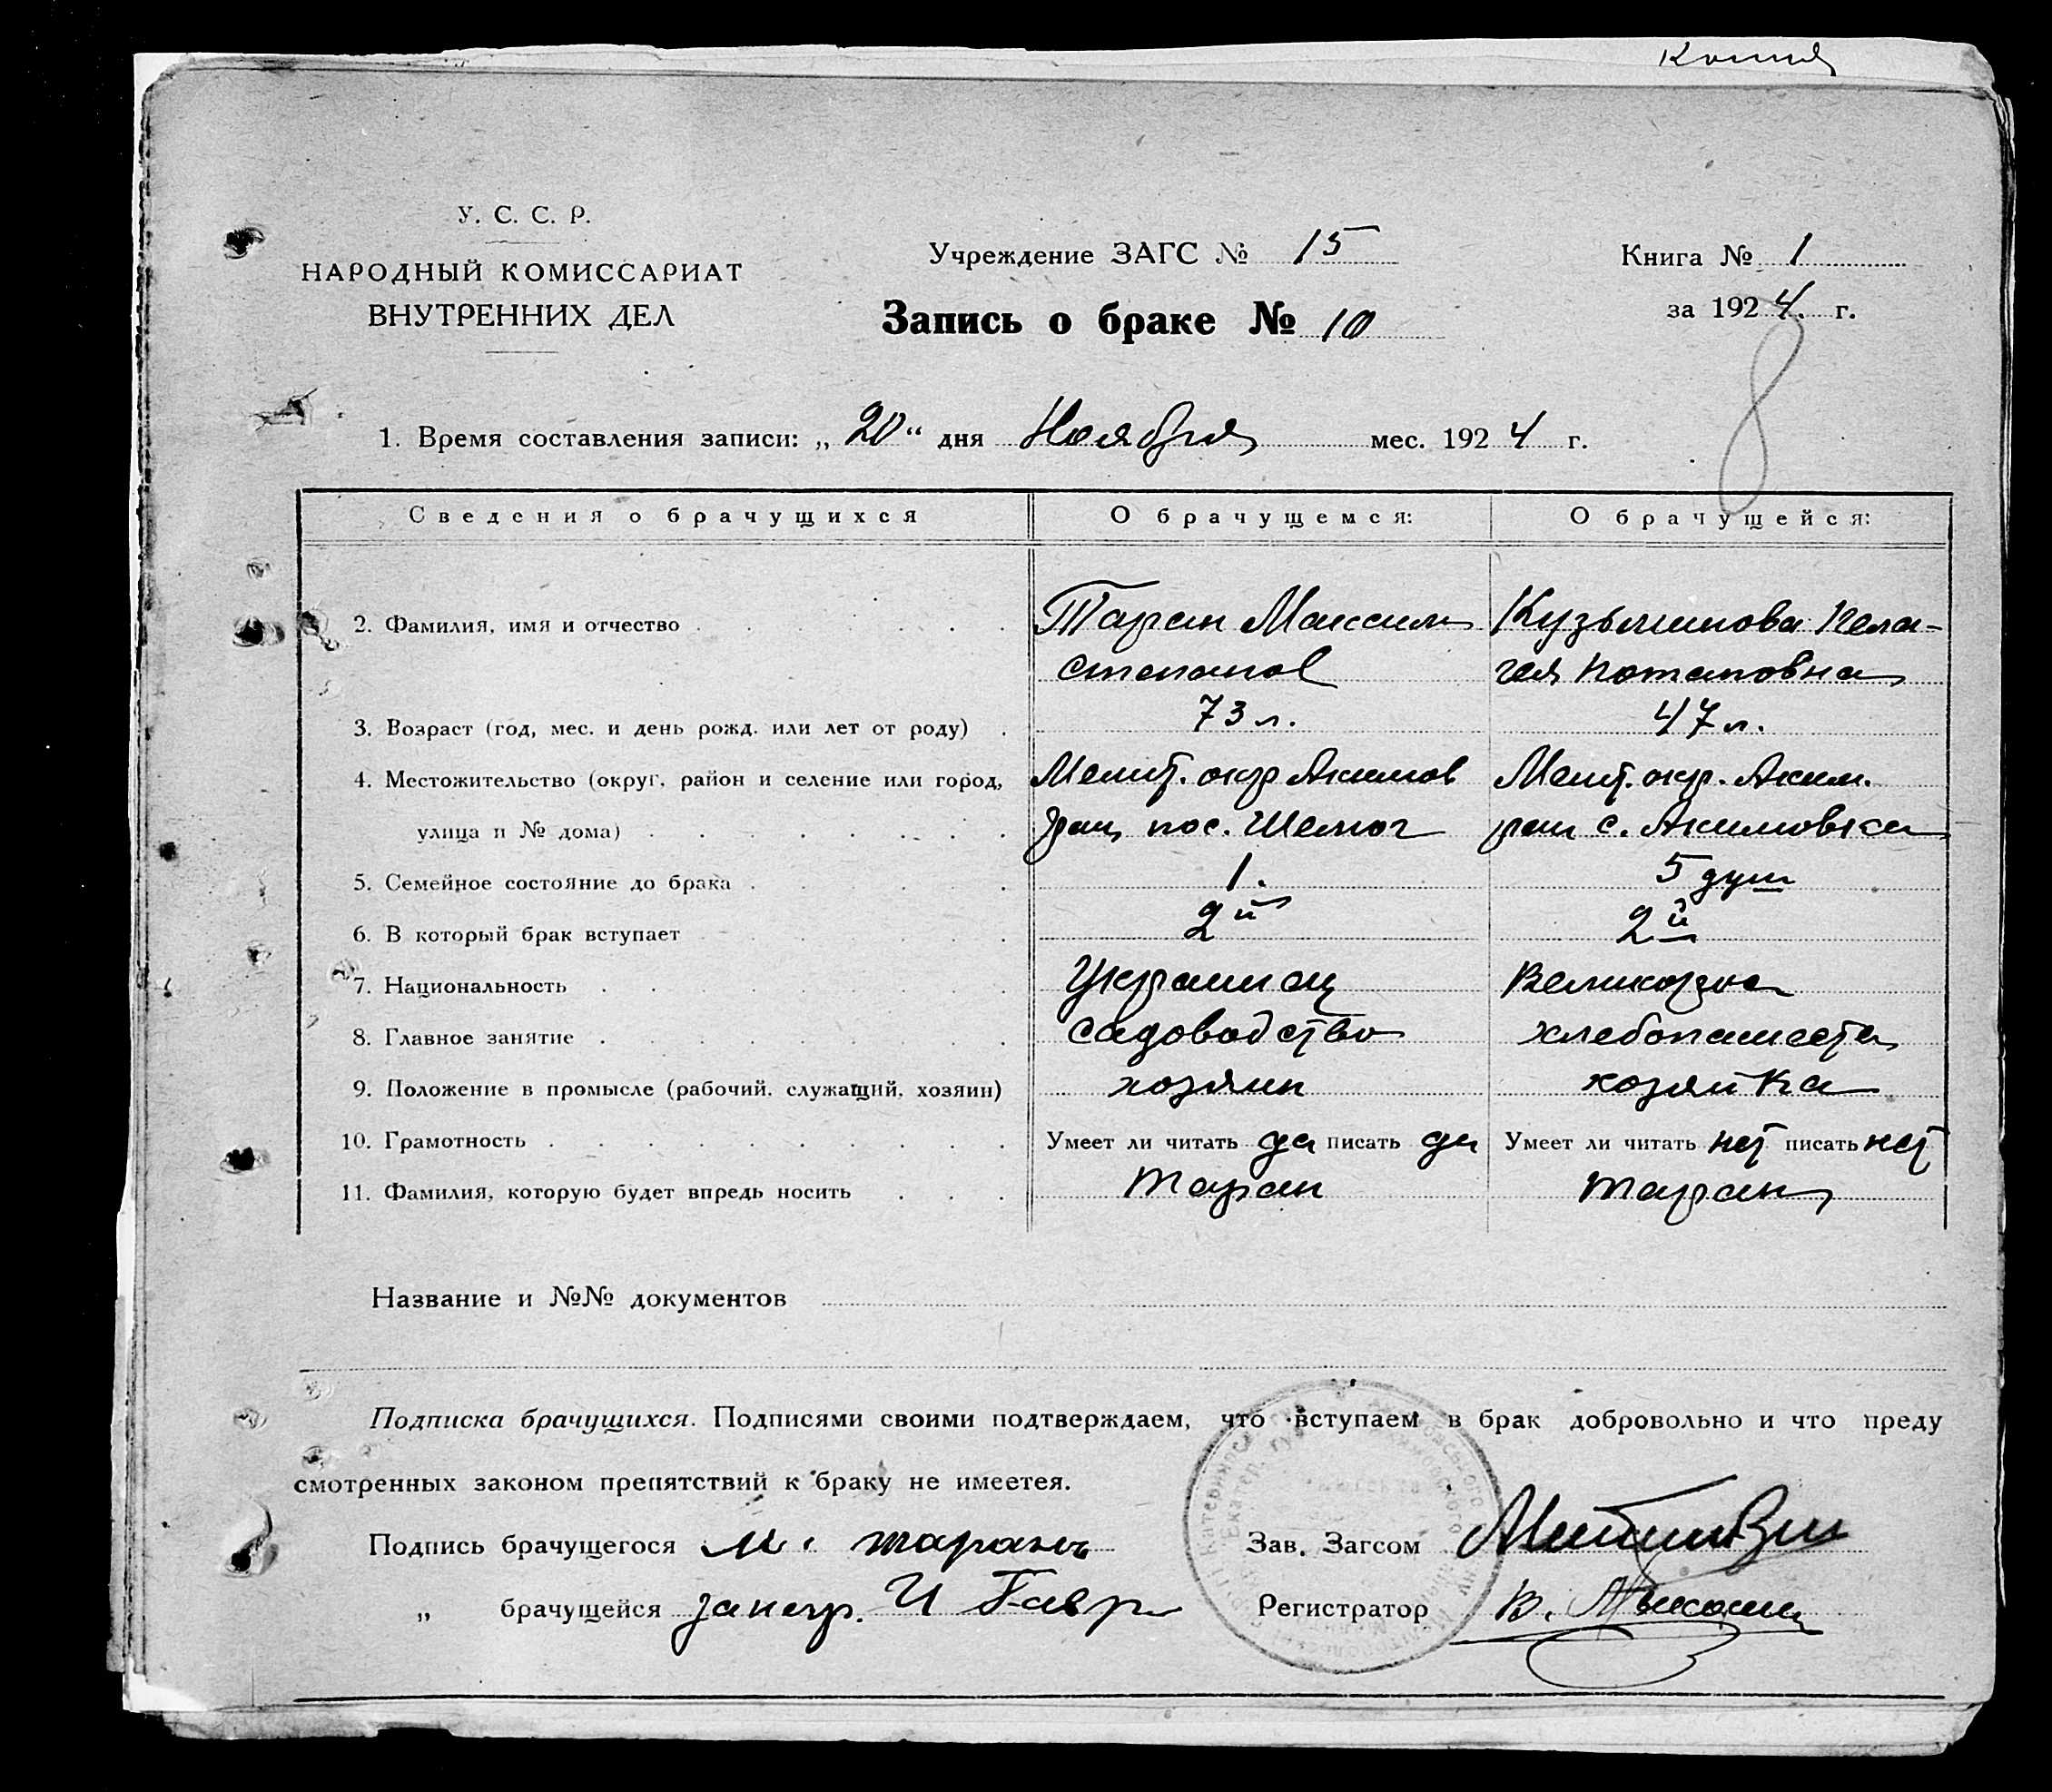 Копия
У. С. С. Р.
НАРОДНЫЙ КОМИССАРИАТ
ВНУТРЕННИХ ДЕЛ
Учреждение ЗАГС № 15
Книга № 1
Запись о браке № 10
за 1924. г.
8
1. Время составления записи: „20“ дня Ноября мес. 1924 г.
Сведения о брачущихся О брачущемся: О брачущейся:
2. Фамилия, имя и отчество Таран Максим Кузьминова Пела-
Степанов гея Потаповна
3. Возраст (год, мес. и день рожд. или лет от роду) 73 л. 47 л.
4. Местожительство (округ, район и селение или город, Мелит. окр Акимов Мелит. окр. Аким.
улица и № дома) район пос. Шелюг рай с. Акимовка
5. Семейное состояние до брака 1. 5 душ
6. В который брак вступает 2й 2й
7. Национальность Украинец Великорос
8. Главное занятие садоводство хлебопашеств
9. Положение в промысле (рабочий, служащий, хозяин) хозяин хозяйка
10. Грамотность Умеет ли читать да писать да Умеет ли читать нет писать нет
11. Фамилия, которую будет впредь носить Таран Таран
Название и №№ документов
Подписка брачущихся. Подписями своими подтверждаем, что вступаем в брак добровольно и что преду
смотренных законом препятствий к браку не имеетея.
Подпись брачущегося М. Таранъ Зав. Загсом
„ брачущейся за негр. И Гавр Регистратор В.